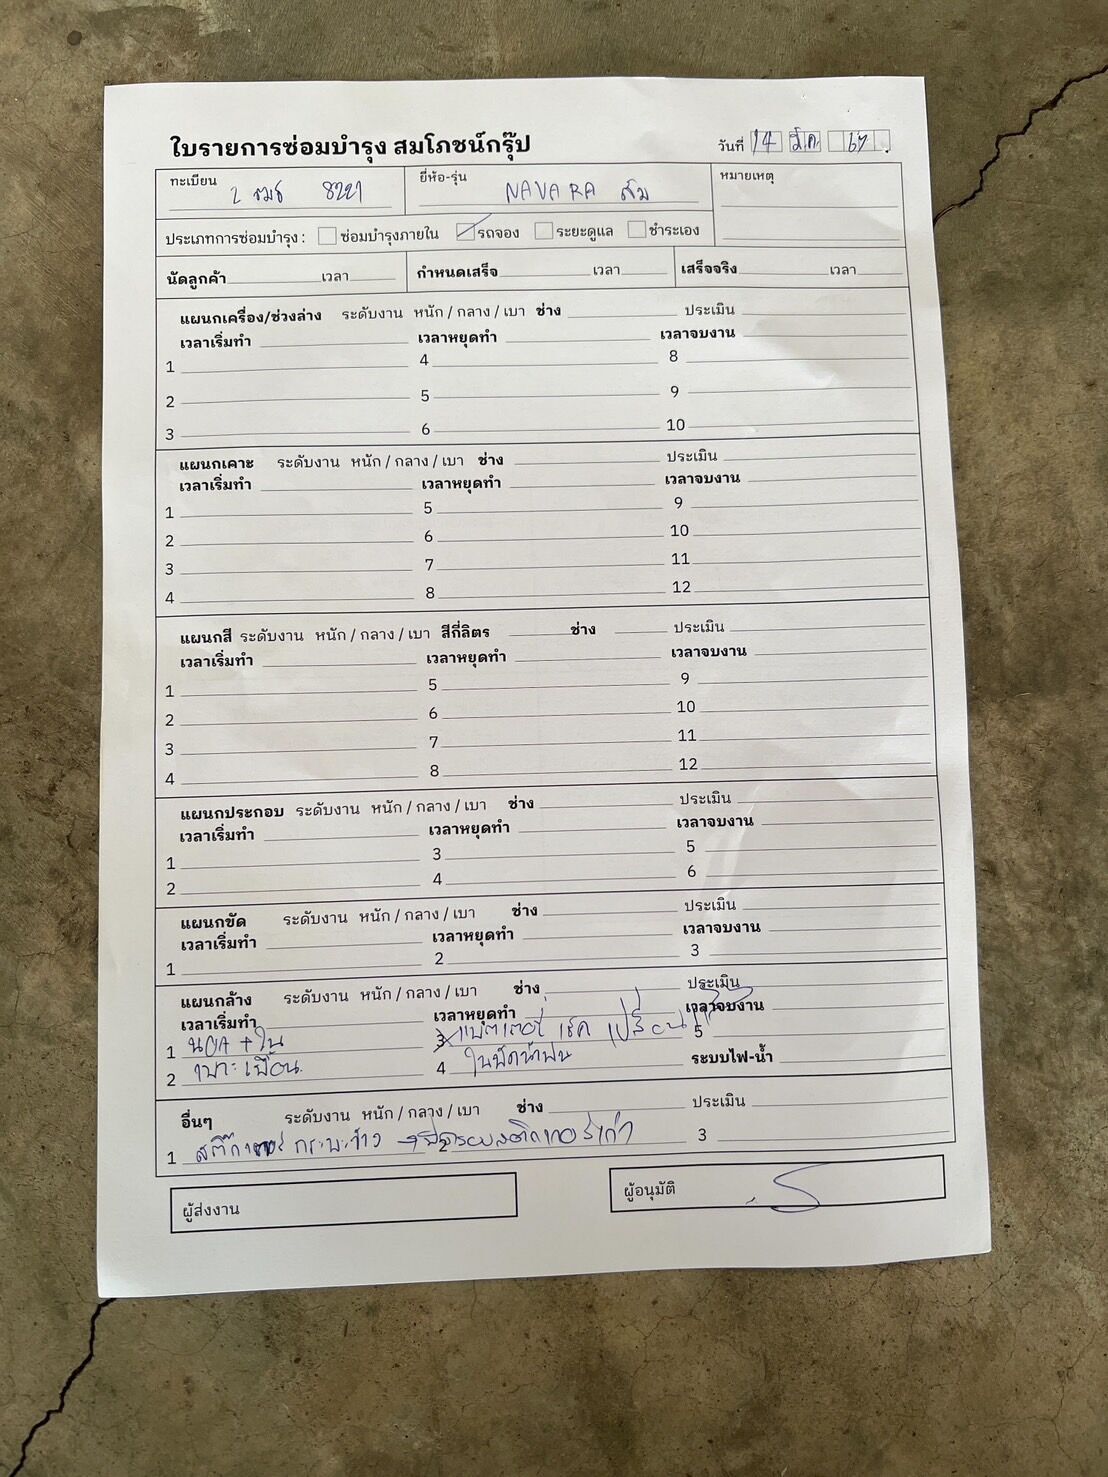 ใบรายการซ่อมบำรุง สมโภชน์กรุ๊ป
วันที่ 14 มี.ค. 67
ทะเบียน 2 ฒธ 8221 ยี่ห้อ-รุ่น NAVARA ส้ม หมายเหตุ
ประเภทการซ่อมบำรุง : ซ่อมบำรุงภายใน รถจอง ระยะดูแล ชำระเอง
นัดลูกค้า เวลา กำหนดเสร็จ เวลา เสร็จจริง เวลา
แผนกเครื่อง/ช่วงล่าง ระดับงาน หนัก / กลาง / เบา ช่าง ประเมิน
เวลาเริ่มทำ เวลาหยุดทำ เวลาจบงาน
1 4 8
2 5 9
3 6 10
แผนกเคาะ ระดับงาน หนัก / กลาง / เบา ช่าง ประเมิน
เวลาเริ่มทำ เวลาหยุดทำ เวลาจบงาน
1 5 9
2 6 10
3 7 11
4 8 12
แผนกสี ระดับงาน หนัก / กลาง / เบา สีกี่ลิตร ช่าง ประเมิน
เวลาเริ่มทำ เวลาหยุดทำ เวลาจบงาน
1 5 9
2 6 10
3 7 11
4 8 12
แผนกประกอบ ระดับงาน หนัก / กลาง / เบา ช่าง ประเมิน
เวลาเริ่มทำ เวลาหยุดทำ เวลาจบงาน
1 3 5
2 4 6
แผนกขัด ระดับงาน หนัก / กลาง / เบา ช่าง ประเมิน
เวลาเริ่มทำ เวลาหยุดทำ เวลาจบงาน
1 2 3
แผนกล้าง ระดับงาน หนัก / กลาง / เบา ช่าง ประเมิน
เวลาเริ่มทำ เวลาหยุดทำ เวลาจบงาน
1 นอก + ใน 3 แบตเตอรี่ เช็ค เปลี่ยน 5
2 เบาะเปื้อน 4 ใบปัดน้ำฝน ระบบไฟ-น้ำ
อื่นๆ ระดับงาน หนัก / กลาง / เบา ช่าง ประเมิน
1 สติ๊กเกอร์ กระบะข้าง → 2 3
ผู้ส่งงาน ผู้อนุมัติ